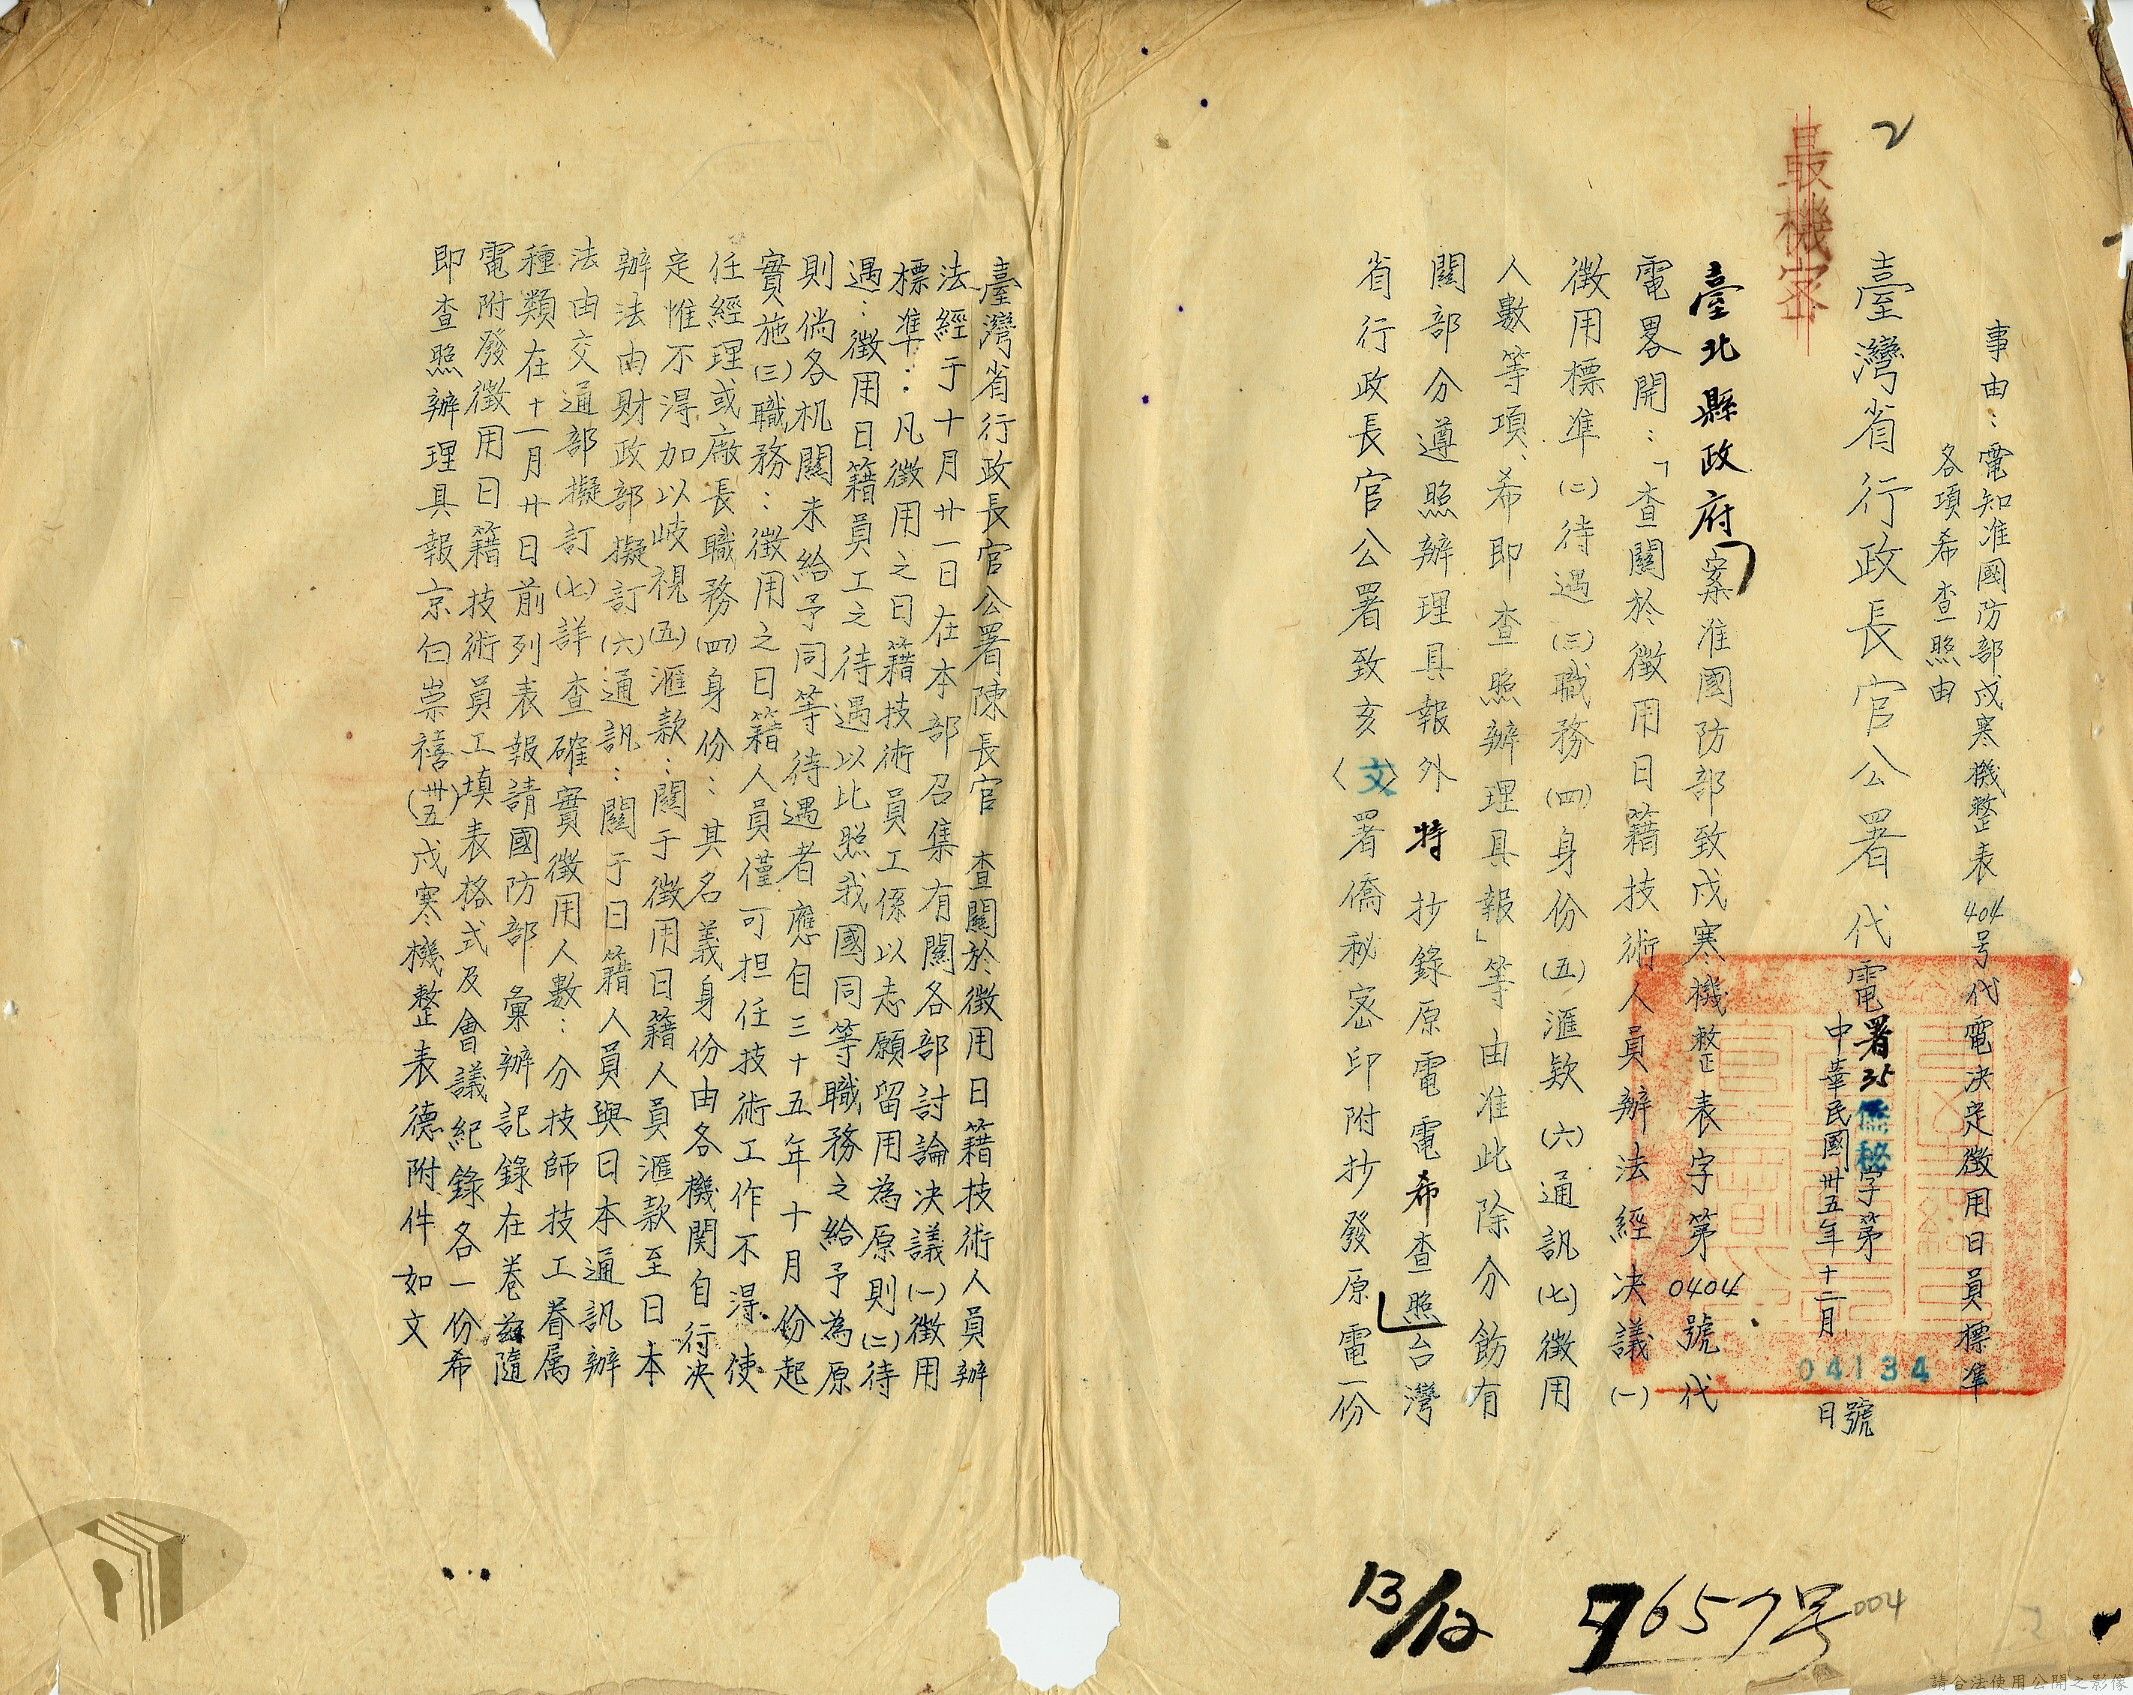 2
最機密
事由：電知准國防部戍寒機整表404号代電決定徵用日員標準
各項希查照由
臺灣省行政長官公署代電
署35僑秘字第04134號
中華民國卅五年十二月 日
臺北縣政府案准國防部致戍寒機整表字第0404號代
電畧開：「查關於徵用日籍技術人員辦法經决議(一)
徵用標準(二)待遇(三)職務(四)身份(五)滙欵(六)通訊(七)徵用
人數等項、希即查照辦理具報」等由准此除分飭有
關部分遵照辦理具報外特抄錄原電電希查照台灣
省行政長官公署致亥〈文〉署僑秘密印附抄發原電一份
臺灣省行政長官公署陳長官 查關於徵用日籍技術人員辦
法經于十月廿一日在本部召集有關各部討論决議(一)徵用
標準：凡徵用之日籍技術員工係以志願留用為原則(二)待
遇：徵用日籍員工之待遇以比照我國同等職務之給予為原
則倘各机關未給予同等待遇者應自三十五年十月份起
實施(三)職務：徵用之日籍人員僅可担任技術工作不得使
任經理或廠長職務(四)身份：其名義身份由各機関自行决
定惟不得加以岐視(五)滙款：關于徵用日籍人員滙款至日本
辦法由財政部擬訂(六)通訊：關于日籍人員與日本通訊辦
法由交通部擬訂(七)詳查確實徵用人數：分技師技工眷属
種類在十一月廿日前列表報請國防部彙辦記錄在卷茲隨
電附發徵用日籍技術員工填表格式及會議紀錄各一份希
即查照辦理具報京白崇禧(卅五)戍寒機整表德附件如文
13/12
7657号
004
請合法使用公開之影像